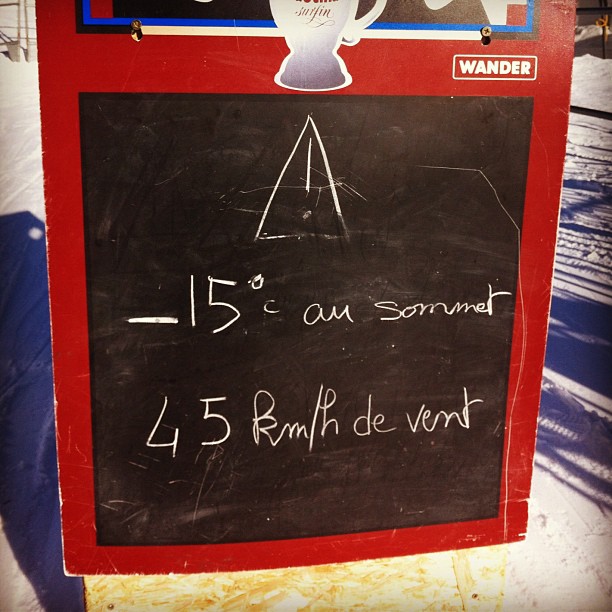 surfin
WANDER
-15°C au sommet
45 km/h de vent